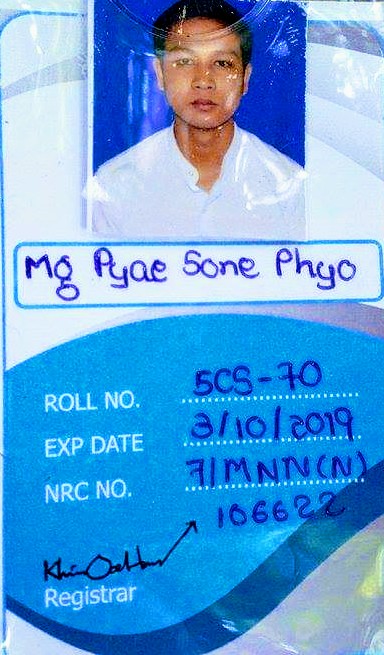 Mg Pyae Sone Phyo
ROLL NO. 5CS-70
EXP DATE 3/10/2019
NRC NO. 7/MNN(N)
106622
Registrar